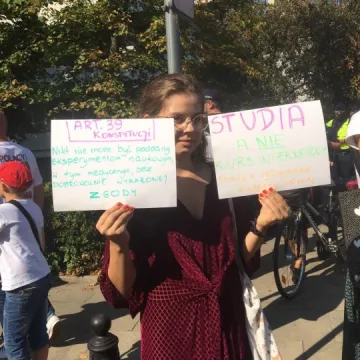 ART. 39
KONSTYTUCJI
Nikt nie może być poddany
eksperymentom naukowym,
w tym medycznym, bez
dobrowolnie wyrażonej
ZGODY
STUDIA
A NIE
KURS INTERNETOWY